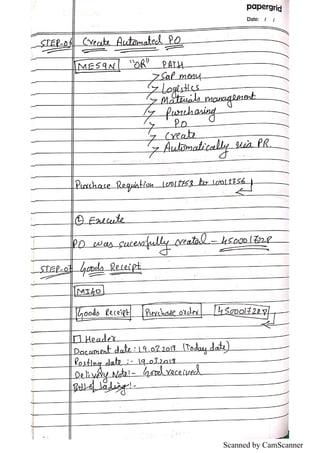 papergrid
Date: / /
STEP-06 Create Automated PO
ME59N "OR" PATH
> SAP menu
> Logistics
> Materials management
> Purchasing
> PO
> Create
> Automatically via PR.
Purchase Requistion to
Execute
PO was sucessfully created - 4500017228
STEP-07 Goods Receipt
MIGO
Goods Receipt Purchase order 4500017228
Header
Document date: 19.02.2019 (Today date)
Posting date :- 19.02.2019
Delivery Note!- Good received
Bill of lading!-
Scanned by CamScanner